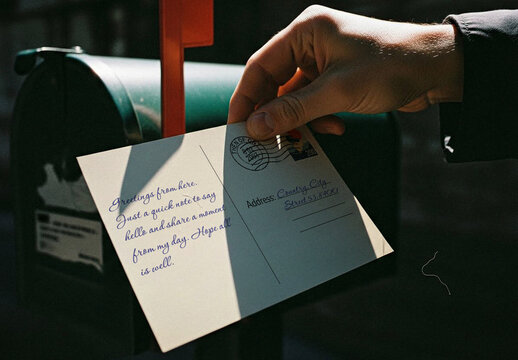 Greetings from here.
Just a quick note to say
hello and share a moment
from my day. Hope all
is well.
Address: Country City,